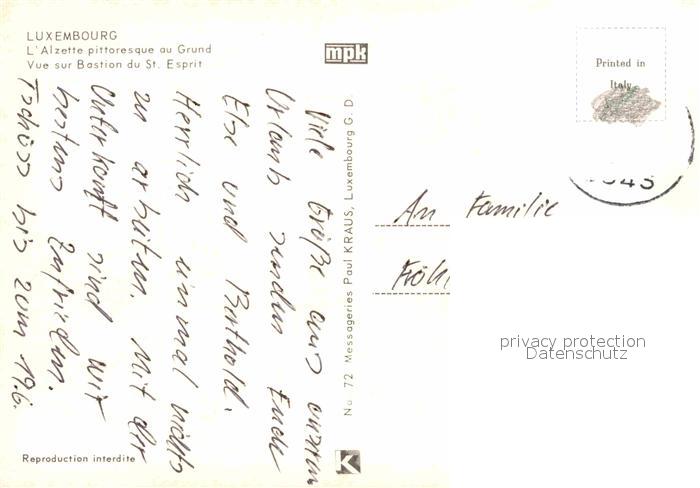 LUXEMBOURG
L'Alzette pittoresque au Grund
Vue sur Bastion du St. Esprit
mpk
Printed in
Italy
Viele Grüße aus unserem
Urlaub senden Ende
Else und Berthold.
Herrlich einmal nichts
zu arbeiten. Mit der
Unterkunft sind wir
bestens zufrieden.
Tschüss bis zum 19.6.
No 72 Messageries Paul KRAUS, Luxembourg G. D.
An Familie
privacy protection
Datenschutz
Reproduction interdite
K